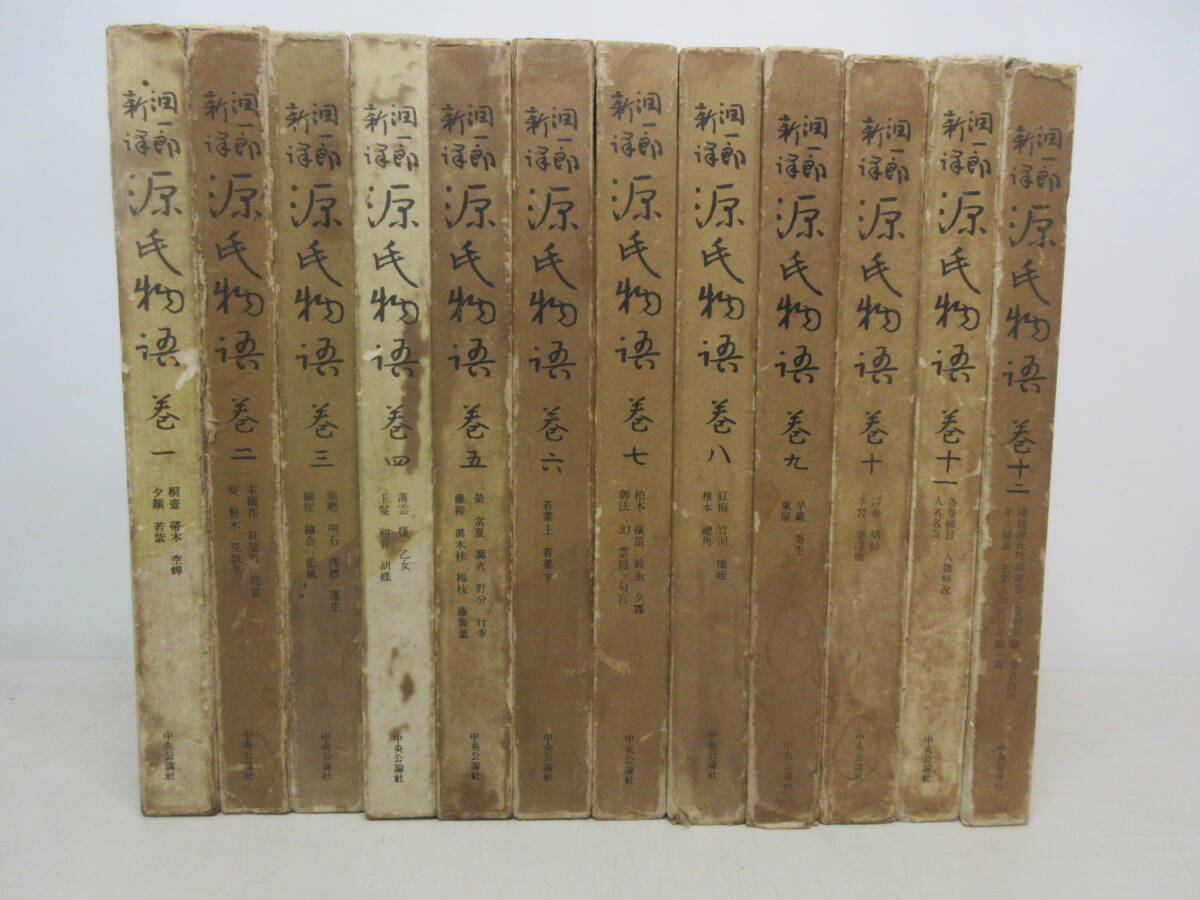 潤一郎
新譯
源氏物語 巻一
桐壺 帚木 空蟬
夕顏 若紫
中央公論社
潤一郎
新譯
源氏物語 巻二
末摘花 紅葉賀 花宴
葵 賢木 花散里
中央公論社
潤一郎
新譯
源氏物語 巻三
須磨 明石 澪標 蓬生
關屋 繪合 松風
中央公論社
潤一郎
新譯
源氏物語 巻四
薄雲 槿 乙女
玉鬘 初音 胡蝶
中央公論社
潤一郎
新譯
源氏物語 巻五
螢 常夏 篝火 野分 行幸
藤袴 眞木柱 梅枝 藤裏葉
中央公論社
潤一郎
新譯
源氏物語 巻六
若菜上 若菜下
中央公論社
潤一郎
新譯
源氏物語 巻七
柏木 橫笛 鈴虫 夕霧
御法 幻 雲隱 匂宮
中央公論社
潤一郎
新譯
源氏物語 巻八
紅梅 竹河 橋姬
椎本 總角
中央公論社
潤一郎
新譯
源氏物語 巻九
早蕨 寄生
東屋
中央公論社
潤一郎
新譯
源氏物語 巻十
浮舟 蜻蛉
手習 夢浮橋
中央公論社
潤一郎
新譯
源氏物語 巻十一
各巻細目 人物略說
人名名寄
中央公論社
潤一郎
新譯
源氏物語 巻十二
中央公論社